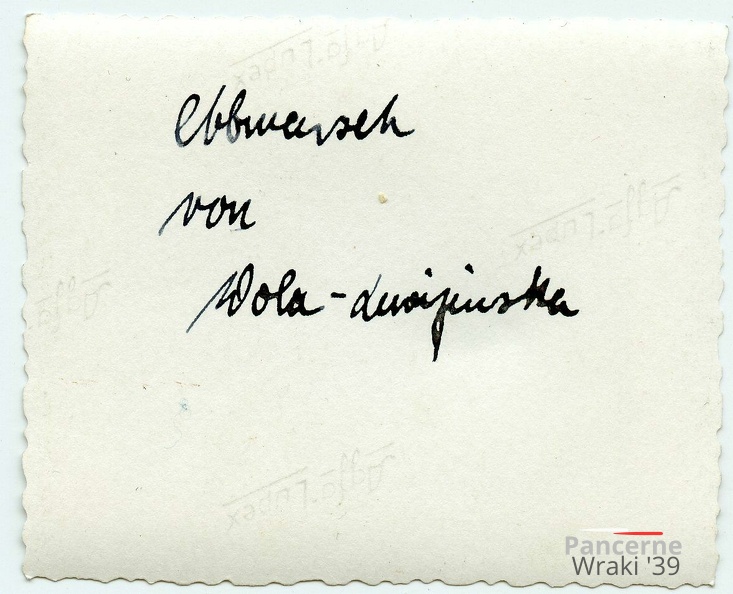 Agfa-Lupex
Abbmarsch
von
Agfa-Lupex
Agfa
Wola-
Agfa-Lupex
Pancerne
Wraki '39